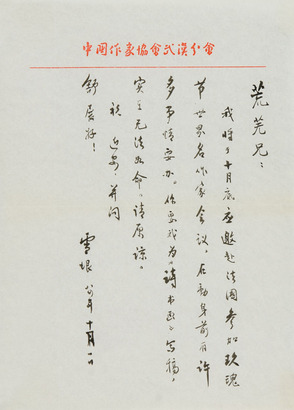 中國作家協會武漢分會
荒芜兄：
我将于十月底应邀赴法国参加玫瑰
节世界名作家会议，在动身前有许
多事情要办。你要我为《诗书画》写稿，
实在无法如命。请原谅。
祝 近安，并问
好！
雪垠 十月